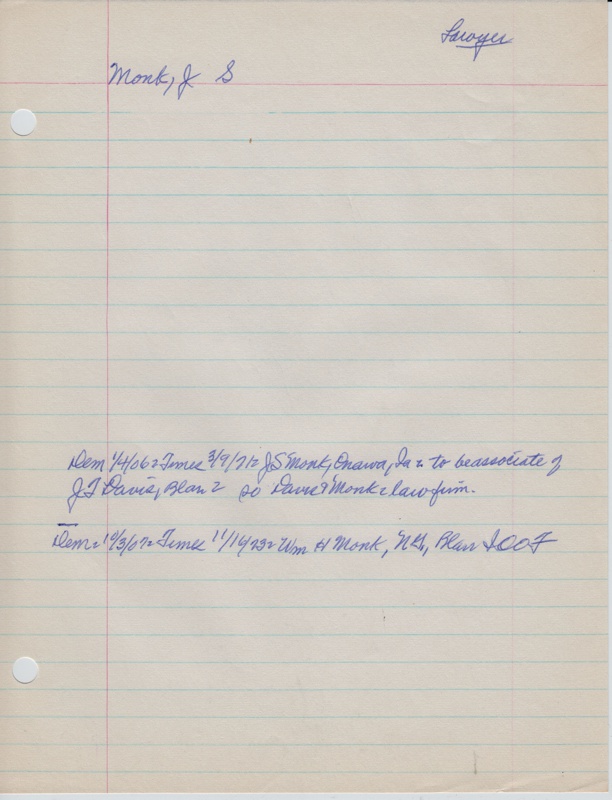 Lawyer
Monk, J S
Dem 1/4/06 = Times 3/9/72 = J S Monk, Onawa, Ia = to be associate of
J F Davis, Blair = so Davis & Monk = law firm.
Dem = 10/3/07 = Times 11/14/73 = Wm H Monk, NG, Blair IOOF